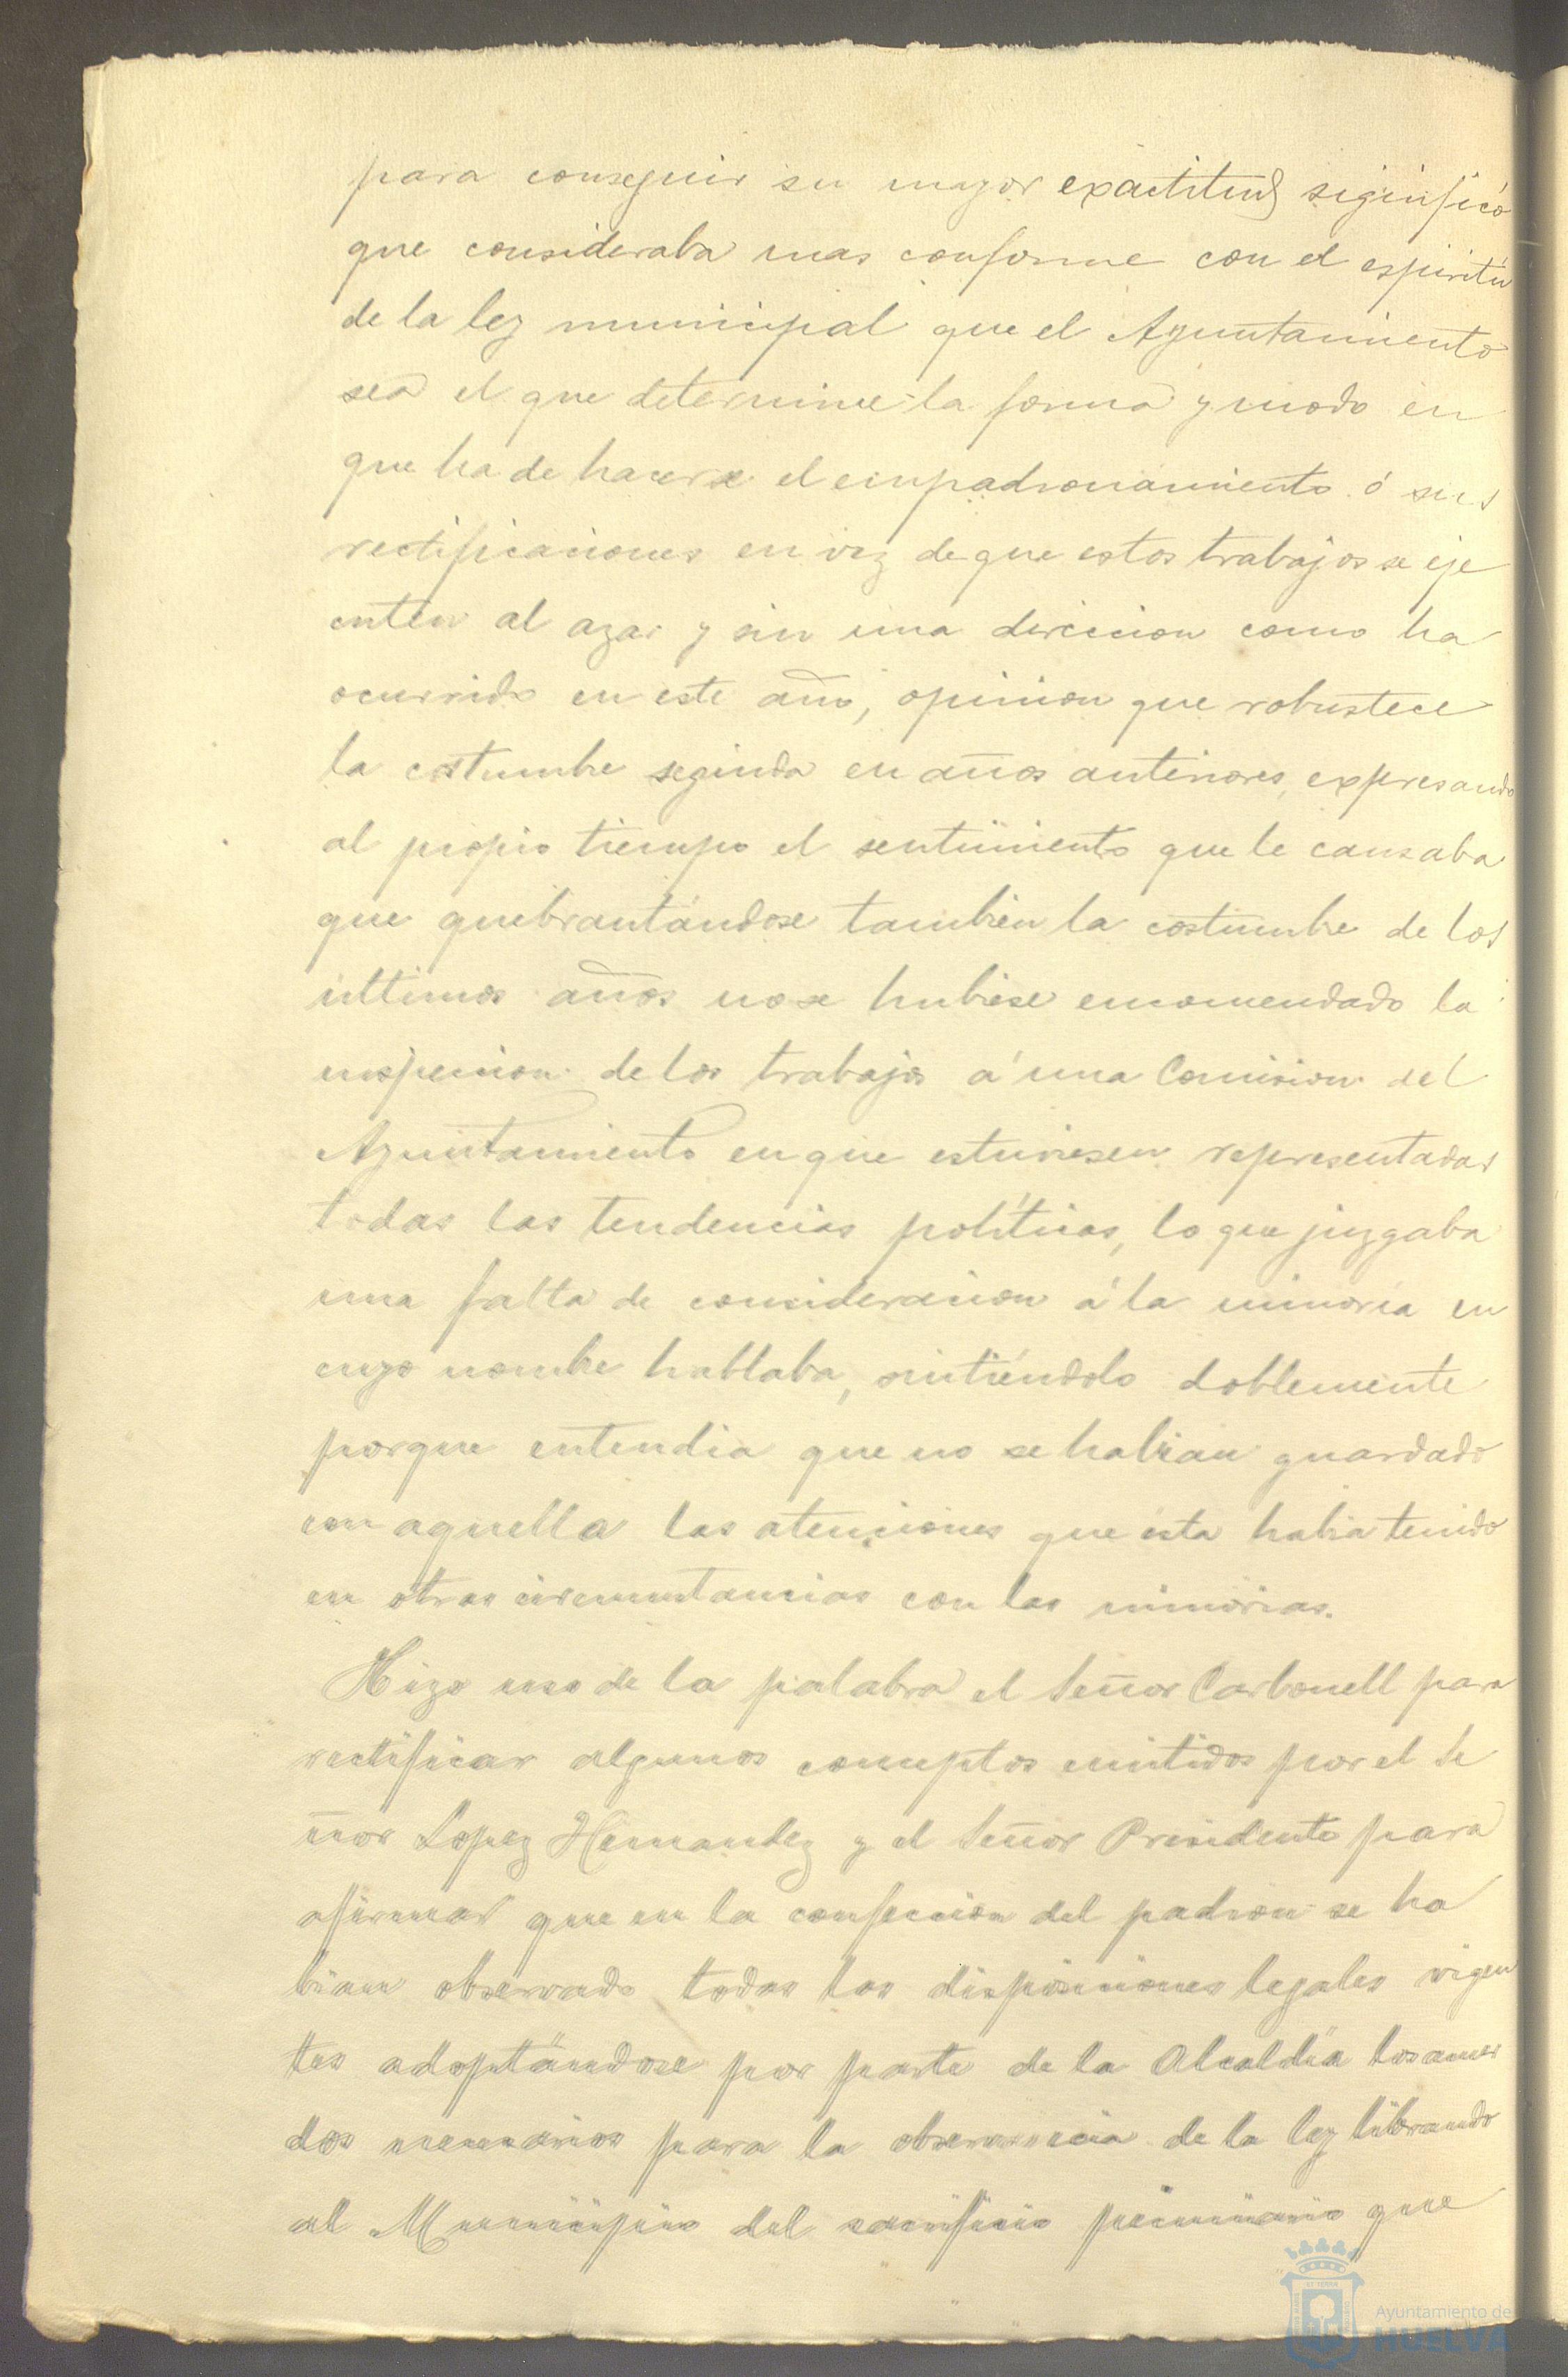 para conseguir su mayor exactitud significó
que consideraba mas conforme con el espiritú
de la ley municipal que el Ayuntamiento
sea el que determine la forma y modo en
que ha de hacerse el empadronamiento ó sus
rectificaciones en vez de que estos trabajos se eje
cuten al azar y sin una direccion como ha
ocurrido en este año, opinion que robustece
la costumbre seguida en años anteriores, expresando
al propio tiempo el sentimiento que le causaba
que quebrantándose tambien la costumbre de los
ultimos años no se hubiese encomendado la
inspeccion de los trabajos á una Comision del
Ayuntamiento en que estuviesen representadas
todas las tendencias políticas, lo que juzgaba
una falta de consideracion á la minoria en
cuyo nombre hablaba, sintiéndolo doblemente
porque entendia que no se habian guardado
con aquella las atenciones que esta habia tenido
en otras circunstancias con las minorias.
Hizo uso de la palabra el Señor Carbonell para
rectificar algunos conceptos emitidos por el Se
ñor Lopez Hernandez y el Señor Presidente para
afirmar que en la confeccion del padron se ha
bian observado todas las disposiciones legales vigen
tes adoptándose por parte de la Alcaldía los acuer
dos necesarios para la observancia de la ley librando
al Municipio del sacrificio pecuniario que
Ayuntamiento de
HUELVA